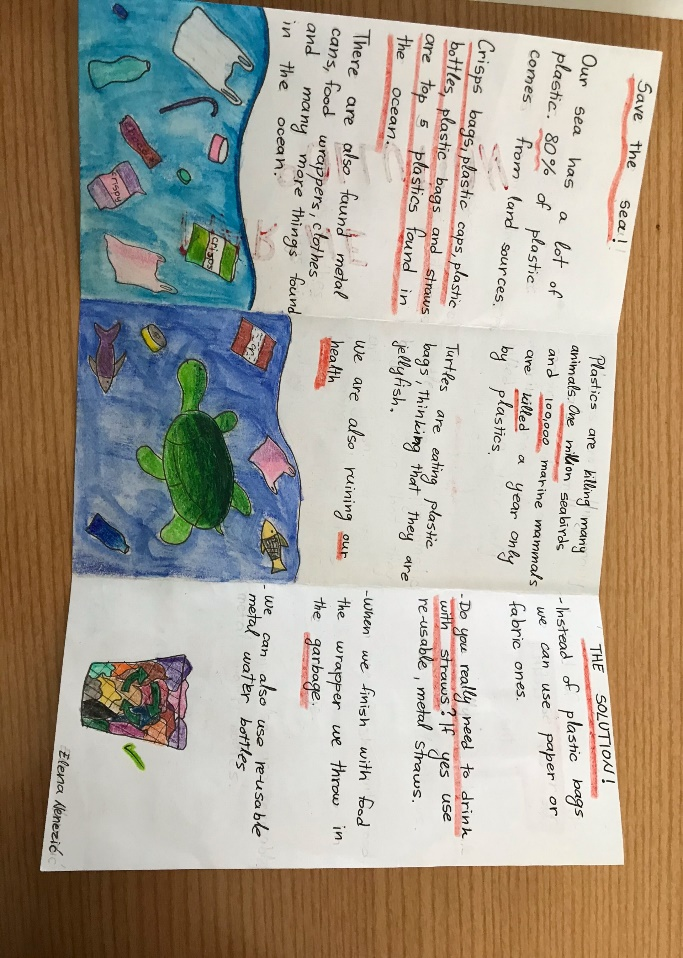 Save the sea!
Our sea has a lot of
plastic. 80% of plastic
comes from land sources.
Crisps bags, plastic caps, plastic
bottles, plastic bags and straws
are top 5 plastics found in
the ocean.
There are also faund metal
cans, food wrappers, clothes
and many more things found
in the ocean.
crispy
crisps
Plastics are killing many
animals. One million seabirds
and 100,000 marine mammals
are killed a year only
by plastics.
Turtles are eating plastic
bags, thinking that they are
jellyfish.
We are also ruining our
health
THE SOLUTION!
- Instead of plastic bags
we can use paper or
fabric ones.
- Do you really need to drink
with straws? If yes use
re-usable, metal straws.
- When we finish with food
the wrapper we throw in
the garbage.
- We can also use re-usable
metal water bottles
Elena Nenezić